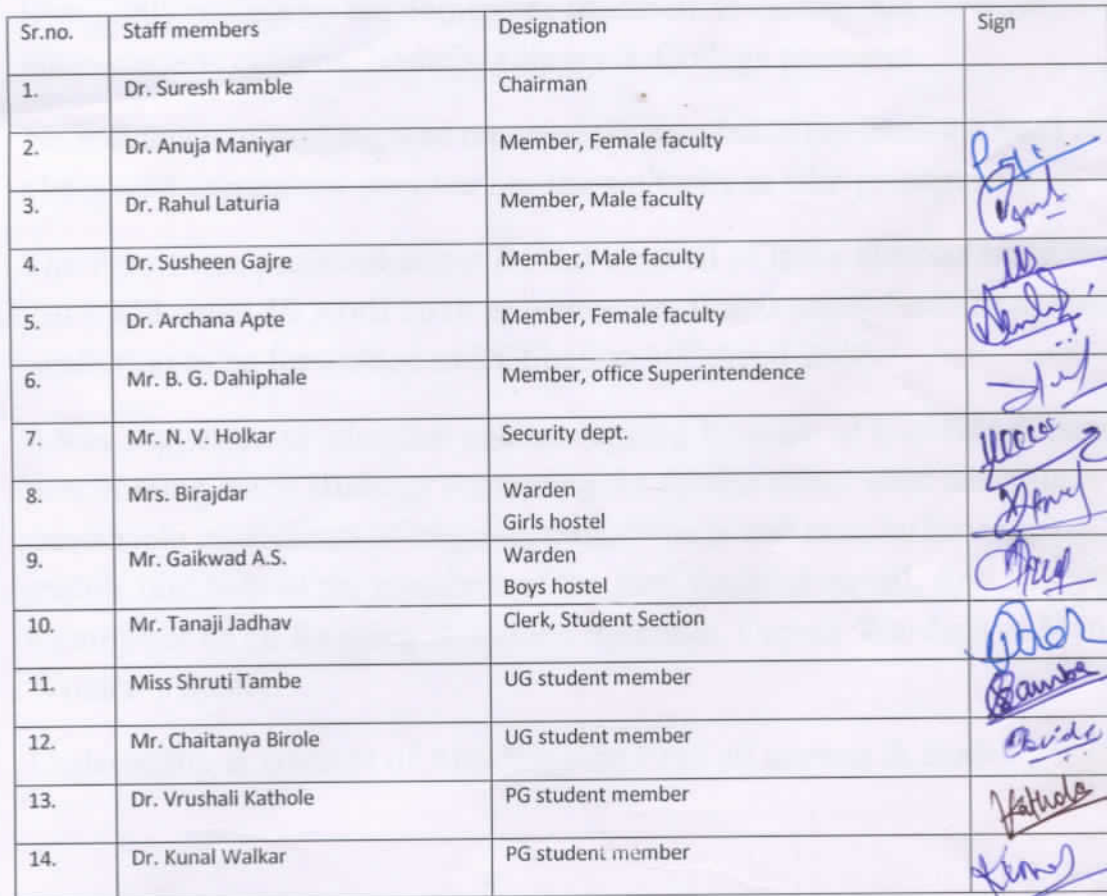 Sr.no. Staff members Designation Sign
1. Dr. Suresh kamble Chairman
2. Dr. Anuja Maniyar Member, Female faculty
3. Dr. Rahul Laturia Member, Male faculty
4. Dr. Susheen Gajre Member, Male faculty
5. Dr. Archana Apte Member, Female faculty
6. Mr. B. G. Dahiphale Member, office Superintendence
7. Mr. N. V. Holkar Security dept.
8. Mrs. Birajdar Warden
Girls hostel
9. Mr. Gaikwad A.S. Warden
Boys hostel
10. Mr. Tanaji Jadhav Clerk, Student Section
11. Miss Shruti Tambe UG student member
12. Mr. Chaitanya Birole UG student member
13. Dr. Vrushali Kathole PG student member Kathole
14. Dr. Kunal Walkar PG student member